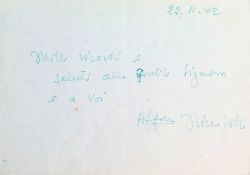 22.11.42
Mille ricordi e
saluti alla gentile Signora
e a voi